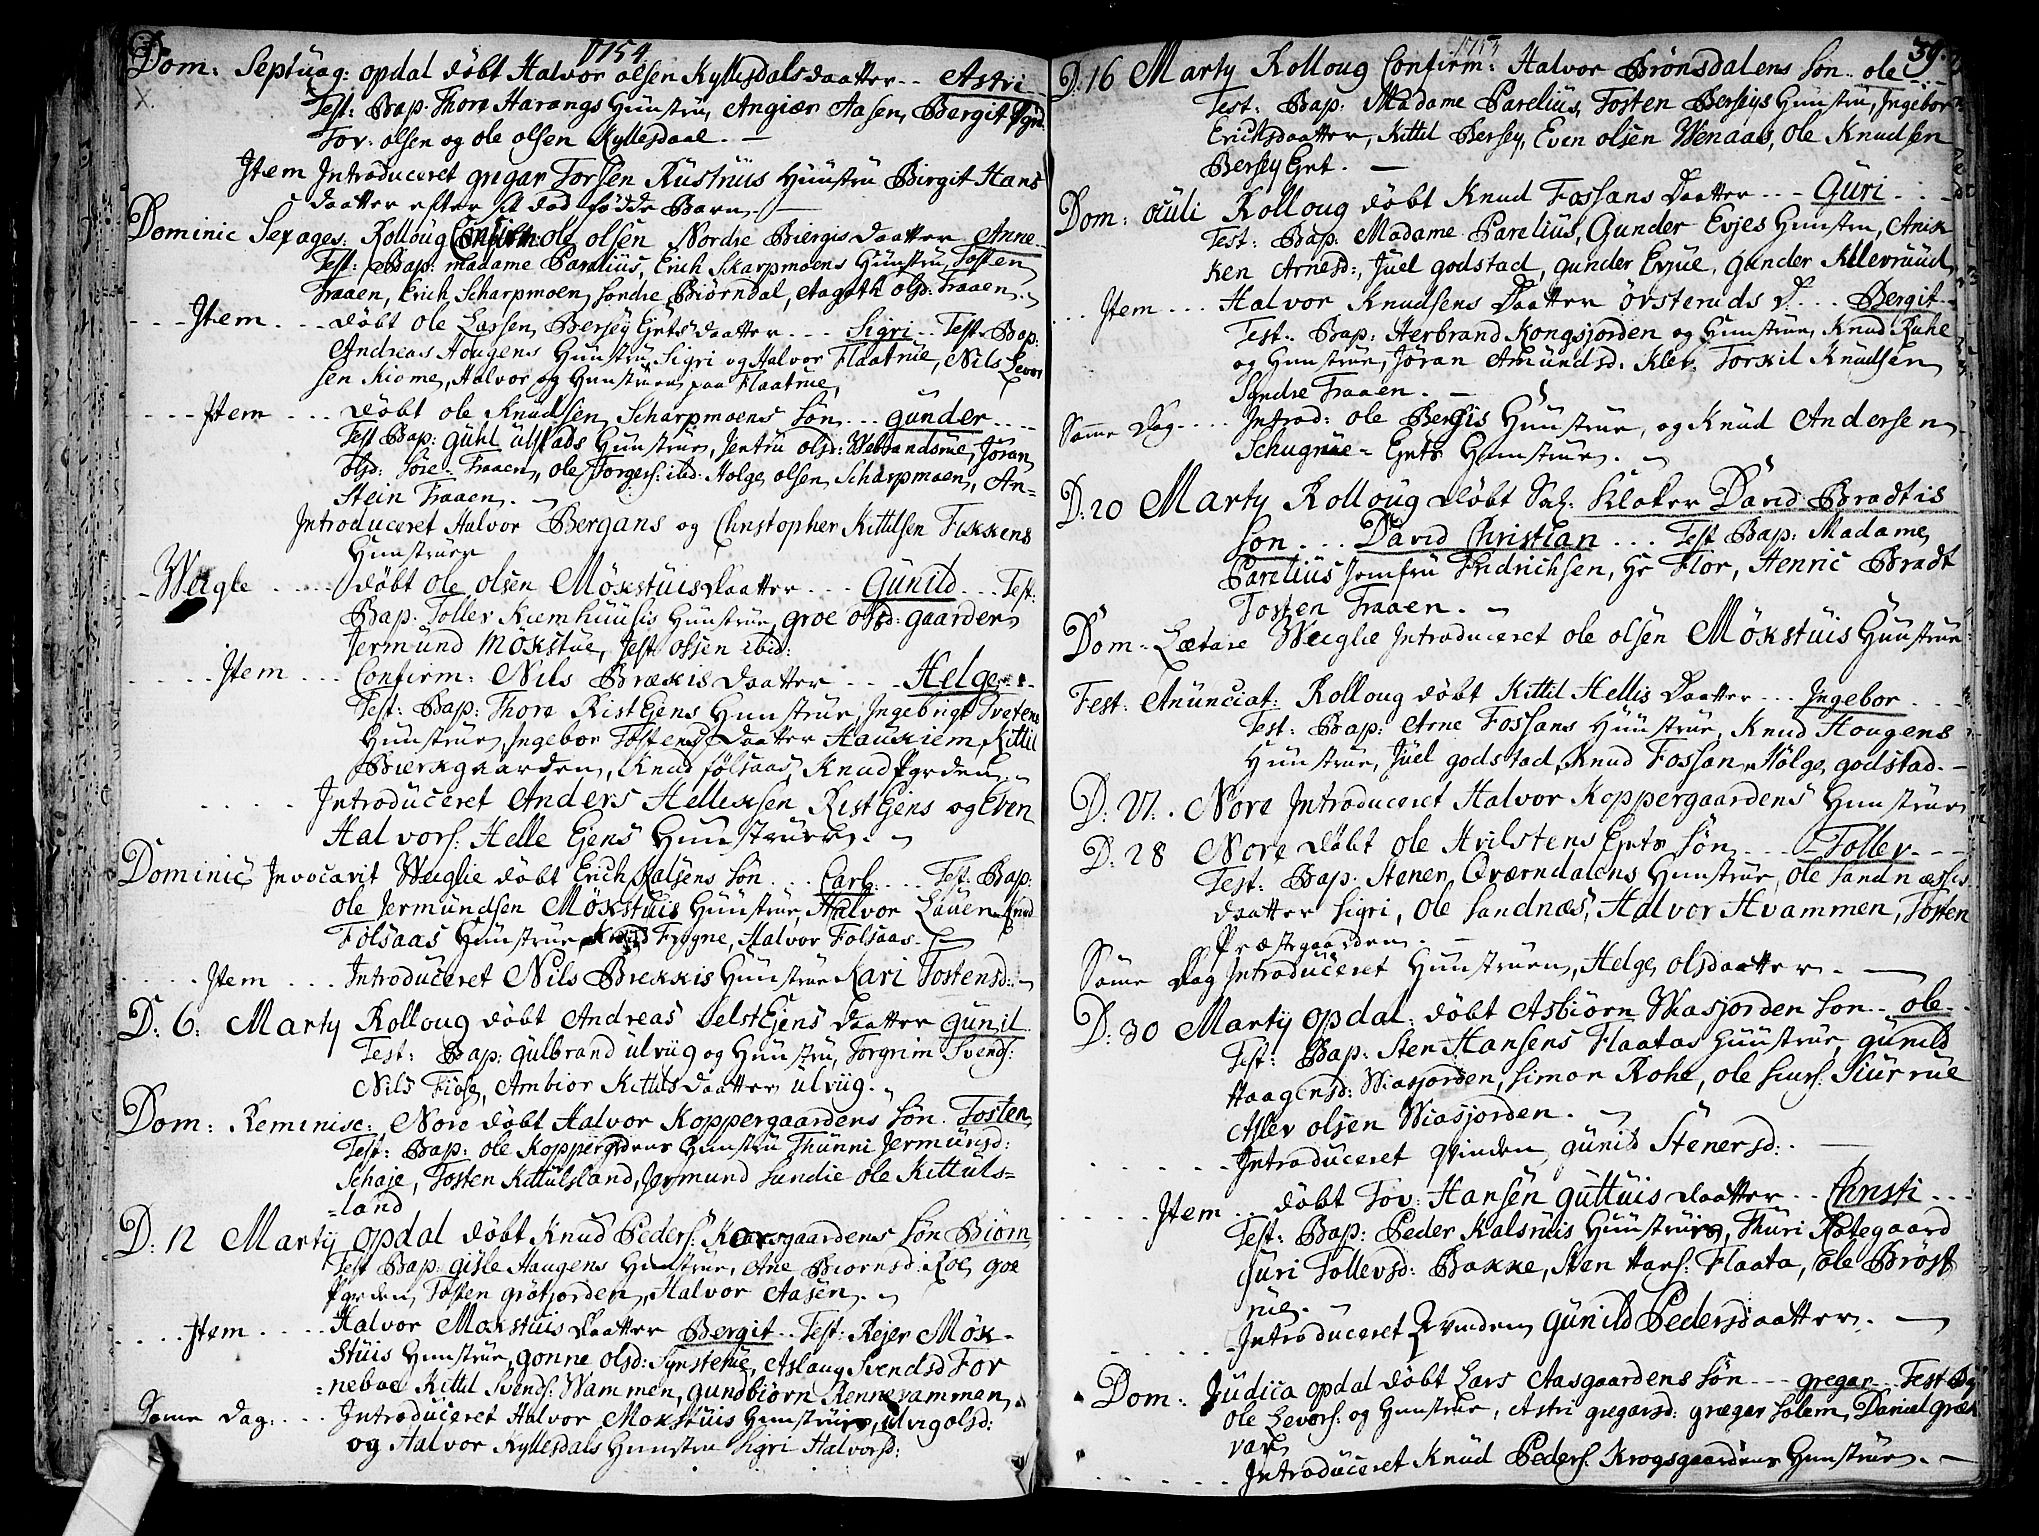 1754
Dom: Septuag: opdal döbt Halvor olsen Kyllesdals daatter .. Astri
Test: Bap: Thore Harangs Hunstru, Angiær Aasen, Bergit Pgrd.
Tov: olsen og ole olsen Kyllesdaal. —
Item Introduceret gregar Torsen Rustuiis Huustru Birgit Hans
daatter efter sit död födde Barn. —
Dominic Sexages: Rolloug Confirm: ole olsen Nordre Biergis daatter Anne
Test: Bap: madame Parelius, Erich Skarpmoens Hunstru, Tosten
Traaen, Erich Scharpmoen, Sondre Biörndal, Aagoth olsd: Traaen.
Item ... döbt Ole Larsen Bersey Eiets daatter ... Sigri .. Test: Bap:
Andreas Hougens Hunstru, Sigri og Halvor Flaatrue, Nils Levor
sen Kiome, Halvor og Hunstruen paa Flaatrue,
Item ... döbt ole Knudsen Scharpmoens Sön ... gunder ...
Test Bap: Guhl ulstads Hunstrue, Jentru olsd: Wetrandsrue, Jöran
olsd: Söre Traaen, ole Torgers: ibid: Holge olsen Scharpmoen, An-
Stein Traaen.
Introduceret Halvor Bergans og Christopher Kittilsen Fekkens
Hunstruer
Weigle ... döbt ole olsen Mökstuis daatter ... Gunild ... Test:
Bap: Toller Kiemhuusis Hunstrue, groe olsd: gaarden
Jermund Mökstue, Jest olsen ibid:
Item ... Confirm: Nils Brækis daatter ... Helge ...
Test: Bap: Thore Rist Ejens Hunstrue, Ingebrigt Tvetens
Hunstrue, Ingebor Tostens daatter Haukiem, Kittil
Bierkgaarden, Knud Folsaas, Knud Pgrden.
Introduceret Anders Hellixsen Rist Ejens og Even
Halvors: Helle Ejens Hunstruer.
Dominic Invocavit Weiglie döbt Erich Kalsens Sön ... Carl ... Test: Bap:
ole Jermundsen Mökstuis Hunstrue, Halvor Lauen, Knud
Folsaas Hunstrue, Frogne, Halvor Folsaas.
Item ... Introduceret Nils Brekkis Hunstrue Kari Tostensd:
D: 6: Marty Rolloug döbt Andreas Selst Ejens daatter Gunil
Test: Bap: Gulbrand ulviig og Hunstru, Torgrim Svends:
Nils Fiose, Ambior Kittils daatter ulviig.
Dom: Reminisc: Nore döbt Halvor Koppergaardens Sön. Tosten
Test: Bap: ole Koppergrdens Hunstru Thunni Jermunsd:
Schaje, Tosten Kittulsland, Jermund Sundie ole Kittuls=
=land
D: 12 Marty opdal döbt Knud Peders: Korsgaardens Sön Biörn
Test Bap: gisle Haugens Hunstrue, Ane Biornsd: Roe, goe
Pgrden, Tosten grötjorden, Halvor Aasen.
Item ... Halvor Mökstuis daatter Bergit .. Test: Rejer Mök-
Stuis Hunstrue, gonne olsd: Synsterue, Aslaug Svendsd For
=neboe Kittil Svends: Wammen, gundbiorn Rennevammen.
Same Dag: ... Introduceret Halvor Mökstuis Hunstrue, ulvig olsd:
og Halvor Kyllesdals Hunstru Sigri Halvorsd:
39.
D: 16 Marty Rolloug Confirm: Halvor Brönsdalens Sön .. ole
Test: Bap: Madame Parelius, Tosten Berseys Hunstru, Ingebor
Erichsdaatter, Kittil Bersey, Even olsen Wenaas, Ole Knudsen
Bersey Eiet. —
Dom: oculi Rolloug döbt Knud Fossans Daatter ... Guri ...
Test: Bap: Madame Parelius, Gunder Evjes Hunstru, Anik
ken Arnesd:, Juel godstad, gunder Evjue, gunder Klevruud,
Item ... Halvor Knudsens Daatter örsteruds D. ... Bergit
Test: Bap: Herbrand Kongsjorden og Hunstrue, Knud Ruhe
og Hunstrue, Jöran Amundsd: Klev. Torkil Knudsen
Syndre Traaen. —
Same Dag ... Introd: ole Bergis Hunstrue, og Knud Andersen
Schugrue = Eiets Hunstrue.
D: 20 Marty Rolloug döbt Sal: Kloker David Bradtis
Sön ... David Christian ... Test Bap: Madame
Parelius Jomfru Fridrichsen, Hr Flor, Henric Bradt
Tosten Traaen.
Dom: Lætare Weiglie Introduceret ole olsen Mökstuis Hunstrue
Fest: Anunciat: Rolloug döbt Kittil Hellis Daatter ... Ingebor ...
Test: Bap: Arne Fossans Hunstrue, Knud Hougens
Hunstrue, Juel godstad, Knud Fossan, Hölge godstad.
D: 27. Nore Introduceret Halvor Koppergaardens Hunstrue
D: 28 Nore döbt ole Hvilstens Eiets Sön ... Toller ...
Test: Bap: Stener Qværndalens Hunstrue, ole Sandnæssis
daatter Sigri, Ole Sandnæs, Halvor Hvammen, Tosten
Præstgaarden. —
Same Dag Introduceret Hunstruen, Helge olsdaatter. —
D: 30 Marty opdal döbt Asbiörn Wiasjorden Sön .. ole
Test: Bap: Sten Hansens Flaatas Hunstrue, gunild
Haagensd: Wiasjorden, Simon Rohe, ole Siurs: Siurrue
Aslev olsen Wiasjorden.
Introduceret qvinden gunild Stenersd:. —
Item ... döbt Tov: Hansen guttuis daatter .. Christi ...
Test: Bap: Peder Kalsruis Hunstrue, Thuri Rotegaard
Guri Tollevsd: Bakke, Sten Hans: Flaata, ole Bröst
rue.
Introduceret Qvinden Gunild Pedersdaatter. —
Dom: Judica opdal döbt Lars Aasgaardens Sön ... gregar .. Test Bap
ole Levors: og Hunstrue, Astri gregarsd: græger Solem, Daniel græs
var
Introduceret Knud Peders: Krogsgaardens Hunstrue. —